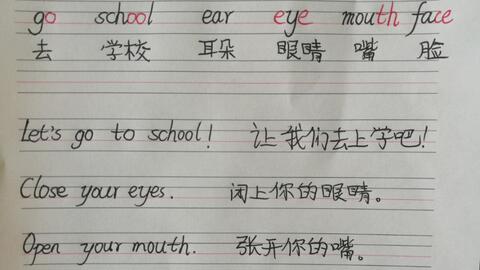 go school ear eye mouth face
去 学校 耳朵 眼睛 嘴 脸
Let's go to school! 让我们去上学吧!
Close your eyes. 闭上你的眼睛。
Open your mouth. 张开你的嘴。